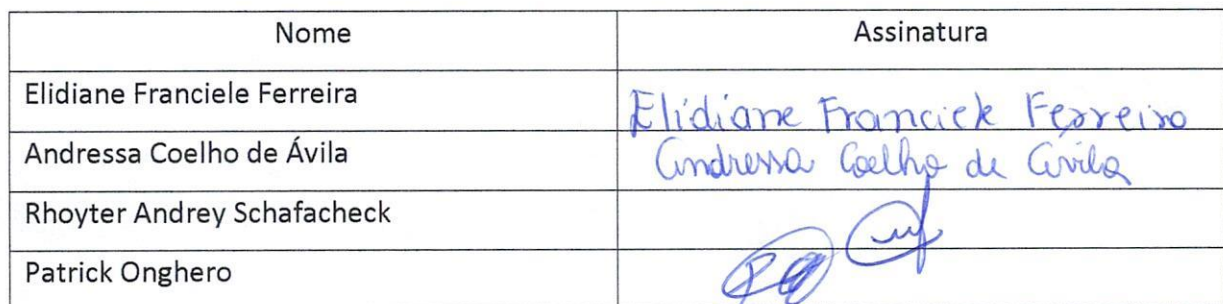 Nome Assinatura
Elidiane Franciele Ferreira Elidiane Franciele Ferreira
Andressa Coelho de Ávila Andressa Coelho de Avila
Rhoyter Andrey Schafacheck
Patrick Onghero